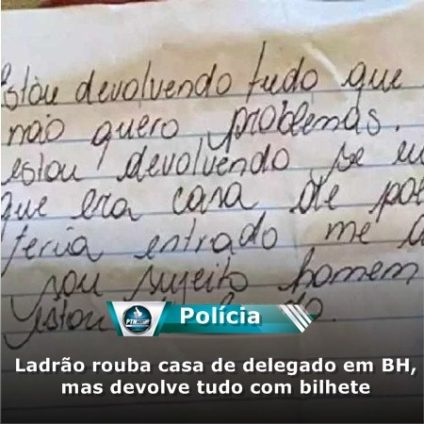 Estou devolvendo tudo que
não quero problemas.
estou devolvendo se eu
que era casa de pol
teria entrado me d
sou sujeito homem
estou
Polícia
Ladrão rouba casa de delegado em BH,
mas devolve tudo com bilhete